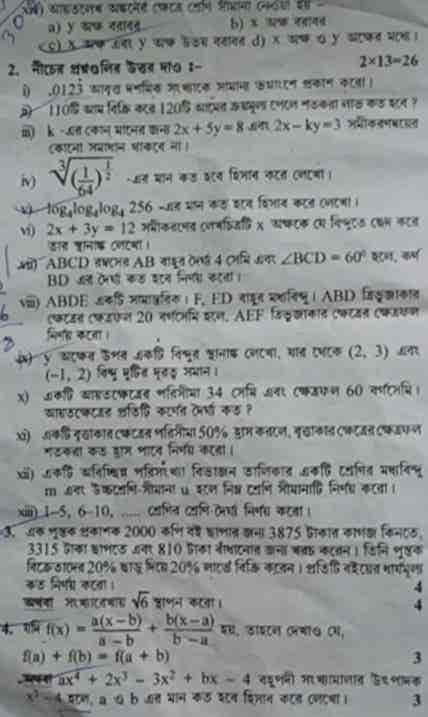 xiv) আয়তলেখ অঙ্কনের ক্ষেত্রে শ্রেণি সীমানা নেওয়া হয় –
a) y অক্ষ বরাবর b) x অক্ষ বরাবর
c) x অক্ষ এবং y অক্ষ উভয় বরাবর d) x অক্ষ ও y অক্ষের মধ্যে।
2. নীচের প্রশ্নগুলির উত্তর দাও :– 2×13=26
i) .0123 আবৃত্ত দশমিক সংখ্যাকে সামান্য ভগ্নাংশে প্রকাশ করো।
ii) 110টি আম বিক্রি করে 120টি আমের ক্রয়মূল্য পেলে শতকরা লাভ কত হবে ?
iii) k -এর কোন্ মানের জন্য 2x + 5y = 8 এবং 2x – ky = 3 সমীকরণদ্বয়ের
কোনো সমাধান থাকবে না।
iv) ∛(1/64)^(1/2) -এর মান কত হবে হিসাব করে লেখো।
v) log₄log₄log₄ 256 -এর মান কত হবে হিসাব করে লেখো।
vi) 2x + 3y = 12 সমীকরণের লেখচিত্রটি x অক্ষকে যে বিন্দুতে ছেদ করে
তার স্থানাঙ্ক লেখো।
vii) ABCD রম্বসের AB বাহুর দৈর্ঘ্য 4 সেমি এবং ∠BCD = 60° হলে, কর্ণ
BD এর দৈর্ঘ্য কত হবে নির্ণয় করো।
viii) ABDE একটি সামান্তরিক। F, ED বাহুর মধ্যবিন্দু। ABD ত্রিভুজাকার
ক্ষেত্রের ক্ষেত্রফল 20 বর্গসেমি হলে, AEF ত্রিভুজাকার ক্ষেত্রের ক্ষেত্রফল
নির্ণয় করো।
ix) y অক্ষের উপর একটি বিন্দুর স্থানাঙ্ক লেখো, যার থেকে (2, 3) এবং
(–1, 2) বিন্দু দুটির দূরত্ব সমান।
x) একটি আয়তক্ষেত্রের পরিসীমা 34 সেমি এবং ক্ষেত্রফল 60 বর্গসেমি।
আয়তক্ষেত্রের প্রতিটি কর্ণের দৈর্ঘ্য কত ?
xi) একটি বৃত্তাকার ক্ষেত্রের পরিসীমা 50% হ্রাস করলে, বৃত্তাকার ক্ষেত্রের ক্ষেত্রফল
শতকরা কত হ্রাস পাবে নির্ণয় করো।
xii) একটি অবিচ্ছিন্ন পরিসংখ্যা বিভাজন তালিকার একটি শ্রেণির মধ্যবিন্দু
m এবং উচ্চশ্রেণি-সীমানা u হলে নিম্ন শ্রেণি সীমানাটি নির্ণয় করো।
xiii) 1–5, 6–10, ..... শ্রেণির শ্রেণি দৈর্ঘ্য নির্ণয় করো।
3. এক পুস্তক প্রকাশক 2000 কপি বই ছাপার জন্য 3875 টাকার কাগজ কিনতে,
3315 টাকা ছাপতে এবং 810 টাকা বাঁধানোর জন্য খরচ করেন। তিনি পুস্তক
বিক্রেতাদের 20% ছাড় দিয়ে 20% লাভে বিক্রি করেন। প্রতিটি বইয়ের ধার্যমূল্য
কত নির্ণয় করো। 4
অথবা সংখ্যারেখায় √6 স্থাপন করো। 4
4. যদি f(x) = a(x – b)/(a – b) + b(x – a)/(b – a) হয়, তাহলে দেখাও যে,
f(a) + f(b) = f(a + b) 3
অথবা ax⁴ + 2x³ – 3x² + bx – 4 বহুপদী সংখ্যামালার উৎপাদক
x² – 4 হলে, a ও b এর মান কত হবে হিসাব করে লেখো। 3